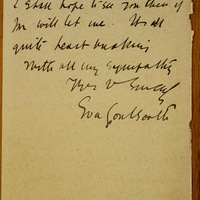 I shall hope to see you then if
you will let me. It's all
quite heart breaking
With all my sympathy
Yrs V Sincerely
Eva Gore Booth